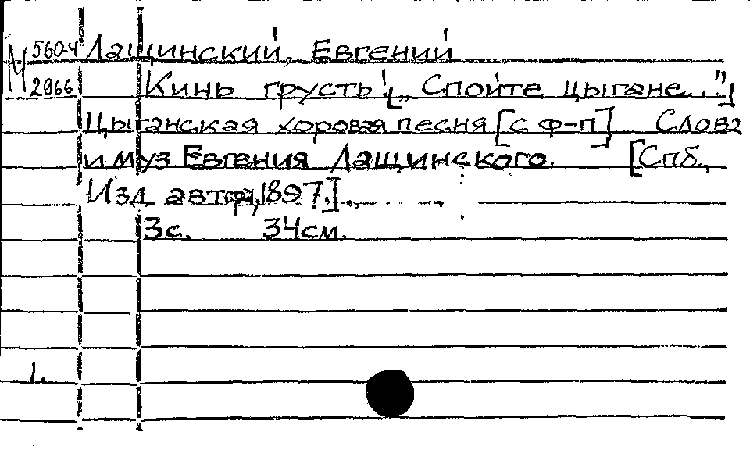 М 5604 Лащинский, Евгений
2966 Кинь грусть! [„Спойте цыгане..."]
Цыганская хоровая песня [с ф-п] Слова
и муз Евгения Лащинского. [Спб.,
Изд автора, 1897.]
3с. 34см.
1.